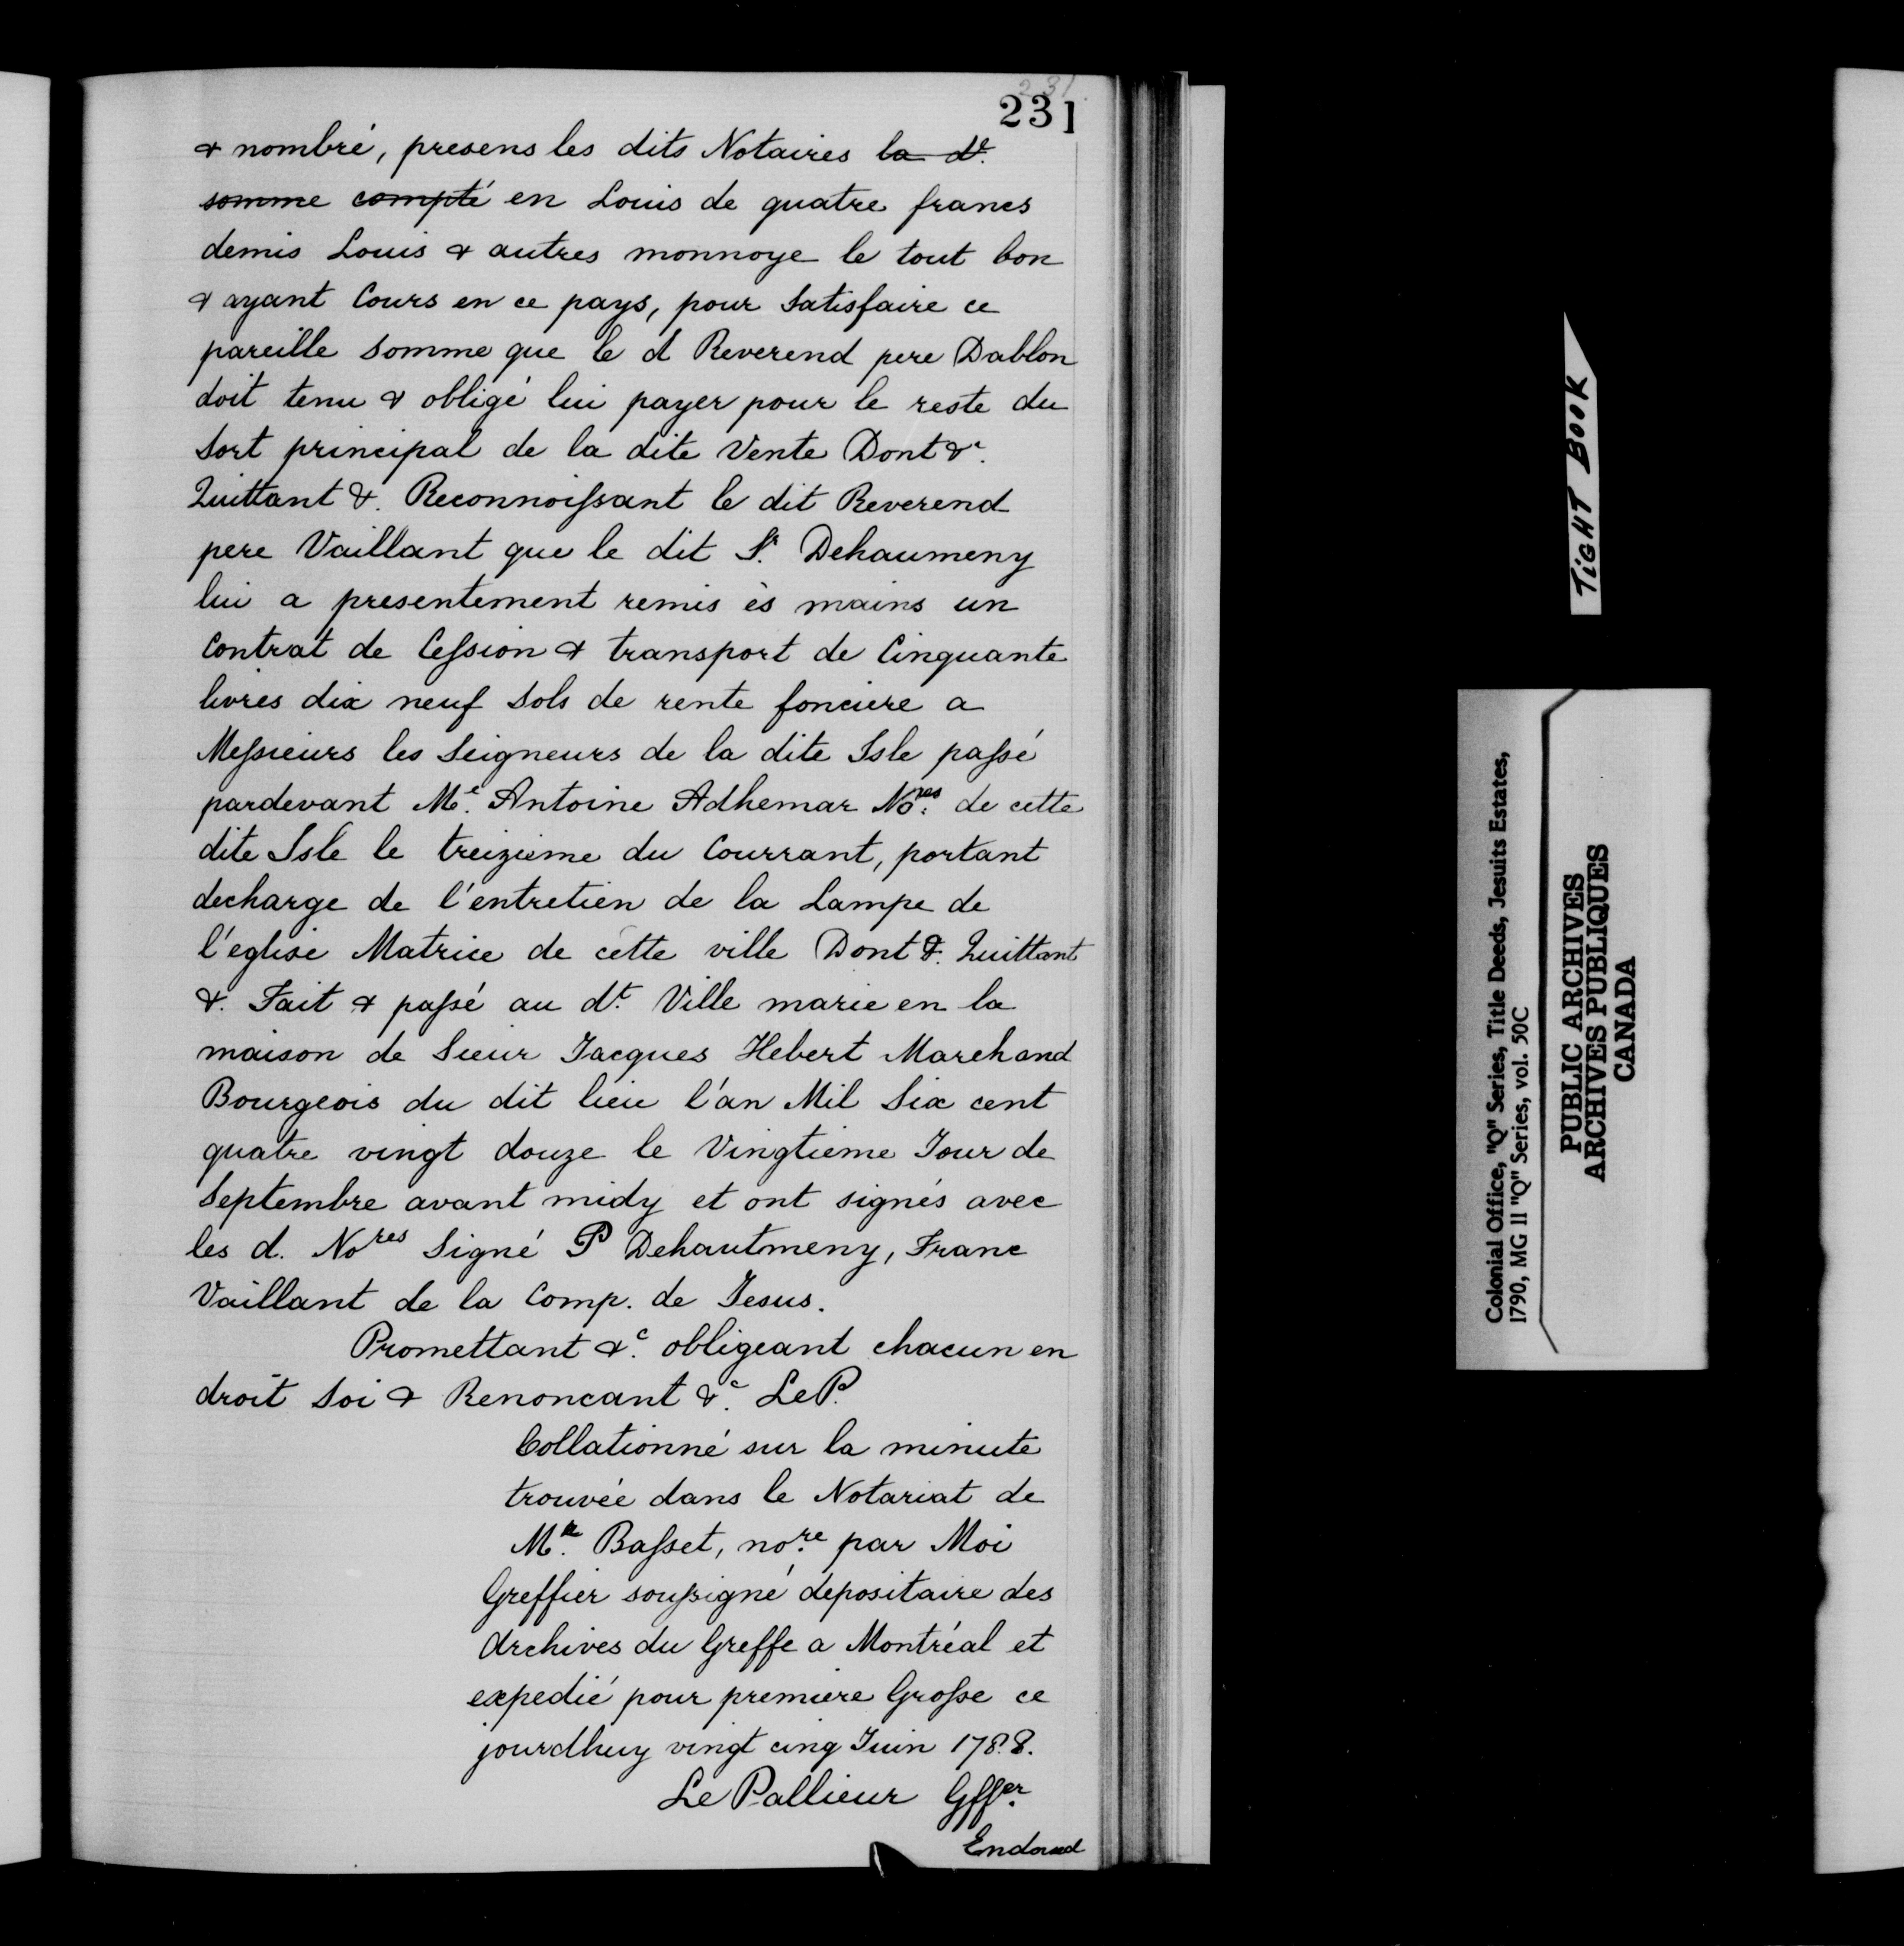 231
231
& nombré, presens les dits Notaires la de.
somme compté en Louis de quatre francs
demis Louis & autres monnoye le tout bon
& ayant Cours en ce pays, pour Satisfaire ce
pareille Somme que le d Reverend pere Dablon
doit tenu & obligé lui payer pour le reste du
Sort principal de la dite Vente Dont &c.
Quittant &. Reconnoissant le dit Reverend
pere Vaillant que le dit Sr. Dehaumeny
lui a presentement remis ès mains un
Contrat de Cession & transport de Cinquante
livres dix neuf Sols de rente fonciere a
Messieurs les Seigneurs de la dite Isle passé
pardevant Me. Antoine Adhemar Nores. de cette
dite Isle le treizieme du Courrant, portant
decharge de l'entretien de la Lampe de
l'eglise Matrice de cette ville Dont &. Quittant
&. Fait & passé au dt. Ville marie en la
maison de Sieur Jacques Hebert Marchand
Bourgeois du dit lieu l'an Mil Six cent
quatre vingt douze le Vingtieme Jour de
Septembre avant midy et ont signés avec
les d. Nores Signé P Dehautmeny, Franc
Vaillant de la Comp. de Jesus.
Promettant &c. obligeant chacun en
droit Soi & Renoncant &c. Le P.
Collationné sur la minute
trouvée dans le Notariat de
Me. Basset, nore. par Moi
Greffier soussigné depositaire des
Archives du Greffe a Montréal et
expedié pour premiere Grosse ce
jourdhuy vingt cinq Juin 1788.
Le Pallieur Gffer.
Endorsed
TIGHT BOOK
Colonial Office, "Q" Series, Title Deeds, Jesuits Estates,
1790, MG 11 "Q" Series, vol. 50C
PUBLIC ARCHIVES
ARCHIVES PUBLIQUES
CANADA